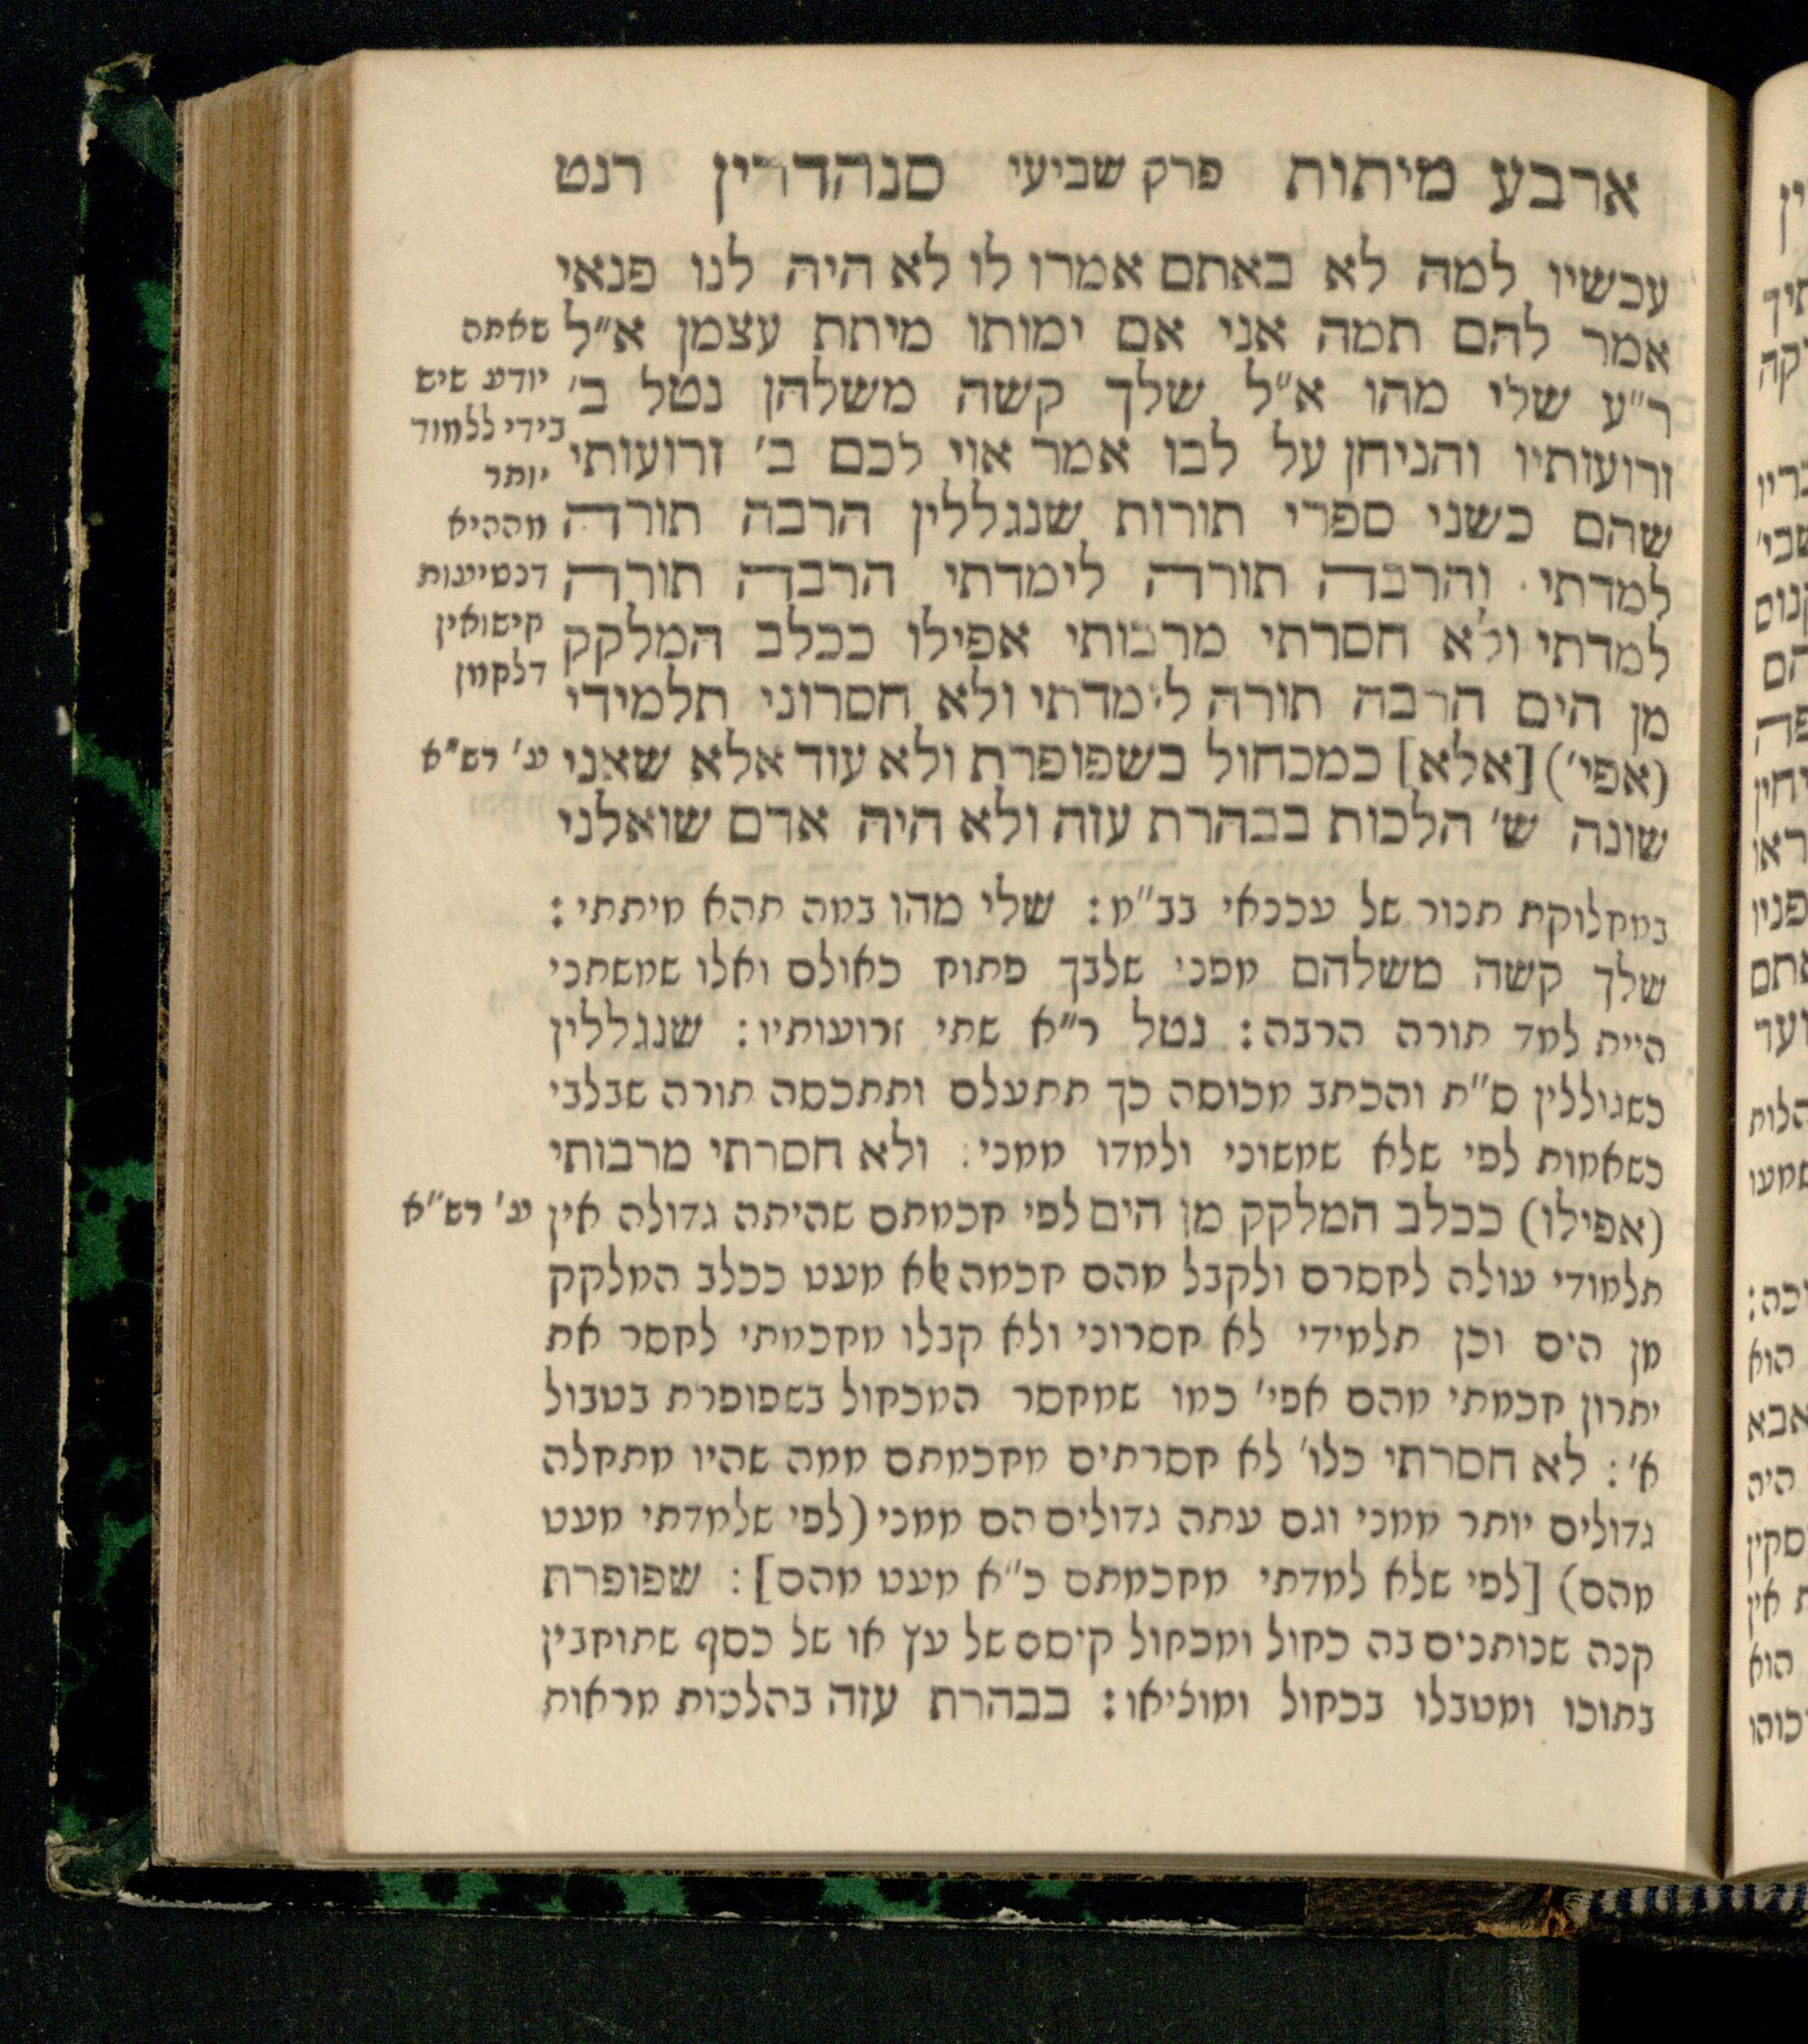 ארבע מיתות פרק שביעי סנהדרין רנט
עכשיו למה לא באתם אמרו לו לא היה לנו פנאי
אמר להם תמה אני אם ימותו מיתת עצמן א״ל
ר״ע שלי מהו א״ל שלך קשה משלהן נטל ב׳
זרועותיו והניחן על לבו אמר אוי לכם ב׳ זרועותי
שהם כשני ספרי תורות שנגללין הרבה תורה
למדתי והרבה תורה לימדתי הרבה תורה
למדתי ולא חסרתי מרבותי אפילו ככלב המלקק
מן הים הרבה תורה לימדתי ולא חסרוני תלמידי
(אפי׳) [אלא] כמכחול בשפופרת ולא עוד אלא שאני
שונה ש׳ הלכות בבהרת עזה ולא היה אדם שואלני
שאתה
יודע שיש
בידי ללמוד
יותר
מההיא
דנטיעות
קישואין
דלקמן
ע׳ רש״א
במחלוקת תנור של עכנאי בב״מ: שלי מהו במה תהא מיתתי:
שלך קשה משלהם מפני שלבך פתוח כאולם ואלו שמשתני
היית למד תורה הרבה: נטל ר״א שתי זרועותיו: שנגללין
כשגוללין ס״ת והכתב מכוסה כך תתעלם ותתכסה תורה שבלבי
כשאמות לפי שלא שמשוני ולמדו ממני: ולא חסרתי מרבותי
(אפילו) ככלב המלקק מן הים לפי חכמתם שהיתה גדולה אין
ע׳ רש״א
תלמודי עולה לחסרם ולקבל מהם חכמה אלא מעט ככלב המלקק
מן הים וכן תלמידי לא חסרוני ולא קבלו מחכמתי לחסר את
יתרון חכמתי מהם אפי׳ כמו שמחסר המכחול בשפופרת בטבול
א׳: לא חסרתי כלו׳ לא חסרתים מחכמתם ממה שהיו מתחלה
גדולים יותר ממני וגם עתה גדולים הם ממני (לפי שלמדתי מעט
מהם) [לפי שלא למדתי מחכמתם כ״א מעט מהם]: שפופרת
קנה שנותנים בה כחול ומכחול קיסם של עץ או של כסף שתוחבין
בתוכו ומטבלו בכחול ומוציאו: בבהרת עזה בהלכות מראות